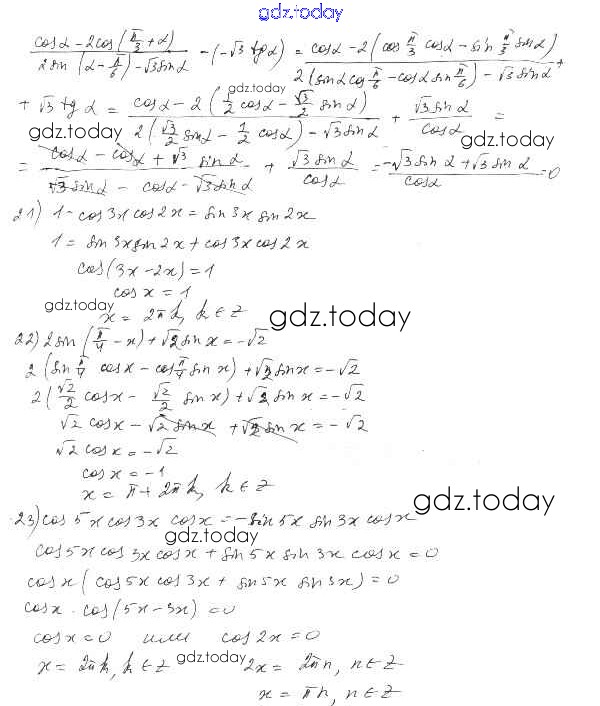 gdz.today
cosα - 2cos(π/3 + α) / 2sin(α - π/6) - √3 sinα - (-√3 tgα) = cosα - 2(cos π/3 cosα - sin π/3 sinα) / 2(sinα cos π/6 - cosα sin π/6) - √3 sinα +
gdz.today
+ √3 tgα = cosα - 2(1/2 cosα - √3/2 sinα) / 2(√3/2 sinα - 1/2 cosα) - √3 sinα + √3 sinα / cosα =
gdz.today
gdz.today
= cosα - cosα + √3 sinα / √3 sinα - cosα - √3 sinα + √3 sinα / cosα = -√3 sinα + √3 sinα / cosα = 0
21) 1 - cos3x cos2x = sin3x sin2x
1 = sin3x sin2x + cos3x cos2x
cos(3x - 2x) = 1
cos x = 1
gdz.today
x = 2πk, k ∈ Z
gdz.today
22) 2sin(π/4 - x) + √2 sin x = -√2
2(sin π/4 cos x - cos π/4 sin x) + √2 sin x = -√2
2(√2/2 cos x - √2/2 sin x) + √2 sin x = -√2
√2 cos x - √2 sin x + √2 sin x = -√2
√2 cos x = -√2
cos x = -1
x = π + 2πk, k ∈ Z
gdz.today
23) cos5x cos3x cosx = -sin5x sin3x cosx
gdz.today
cos5x cos3x cosx + sin5x sin3x cosx = 0
cosx (cos5x cos3x + sin5x sin3x) = 0
cosx · cos(5x - 3x) = 0
cosx = 0 или cos2x = 0
x = 2πk, k ∈ Z gdz.today 2x = 2πn, n ∈ Z
x = πn, n ∈ Z